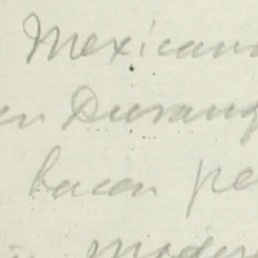 Mexicana
en Durang
bacon pe
moder